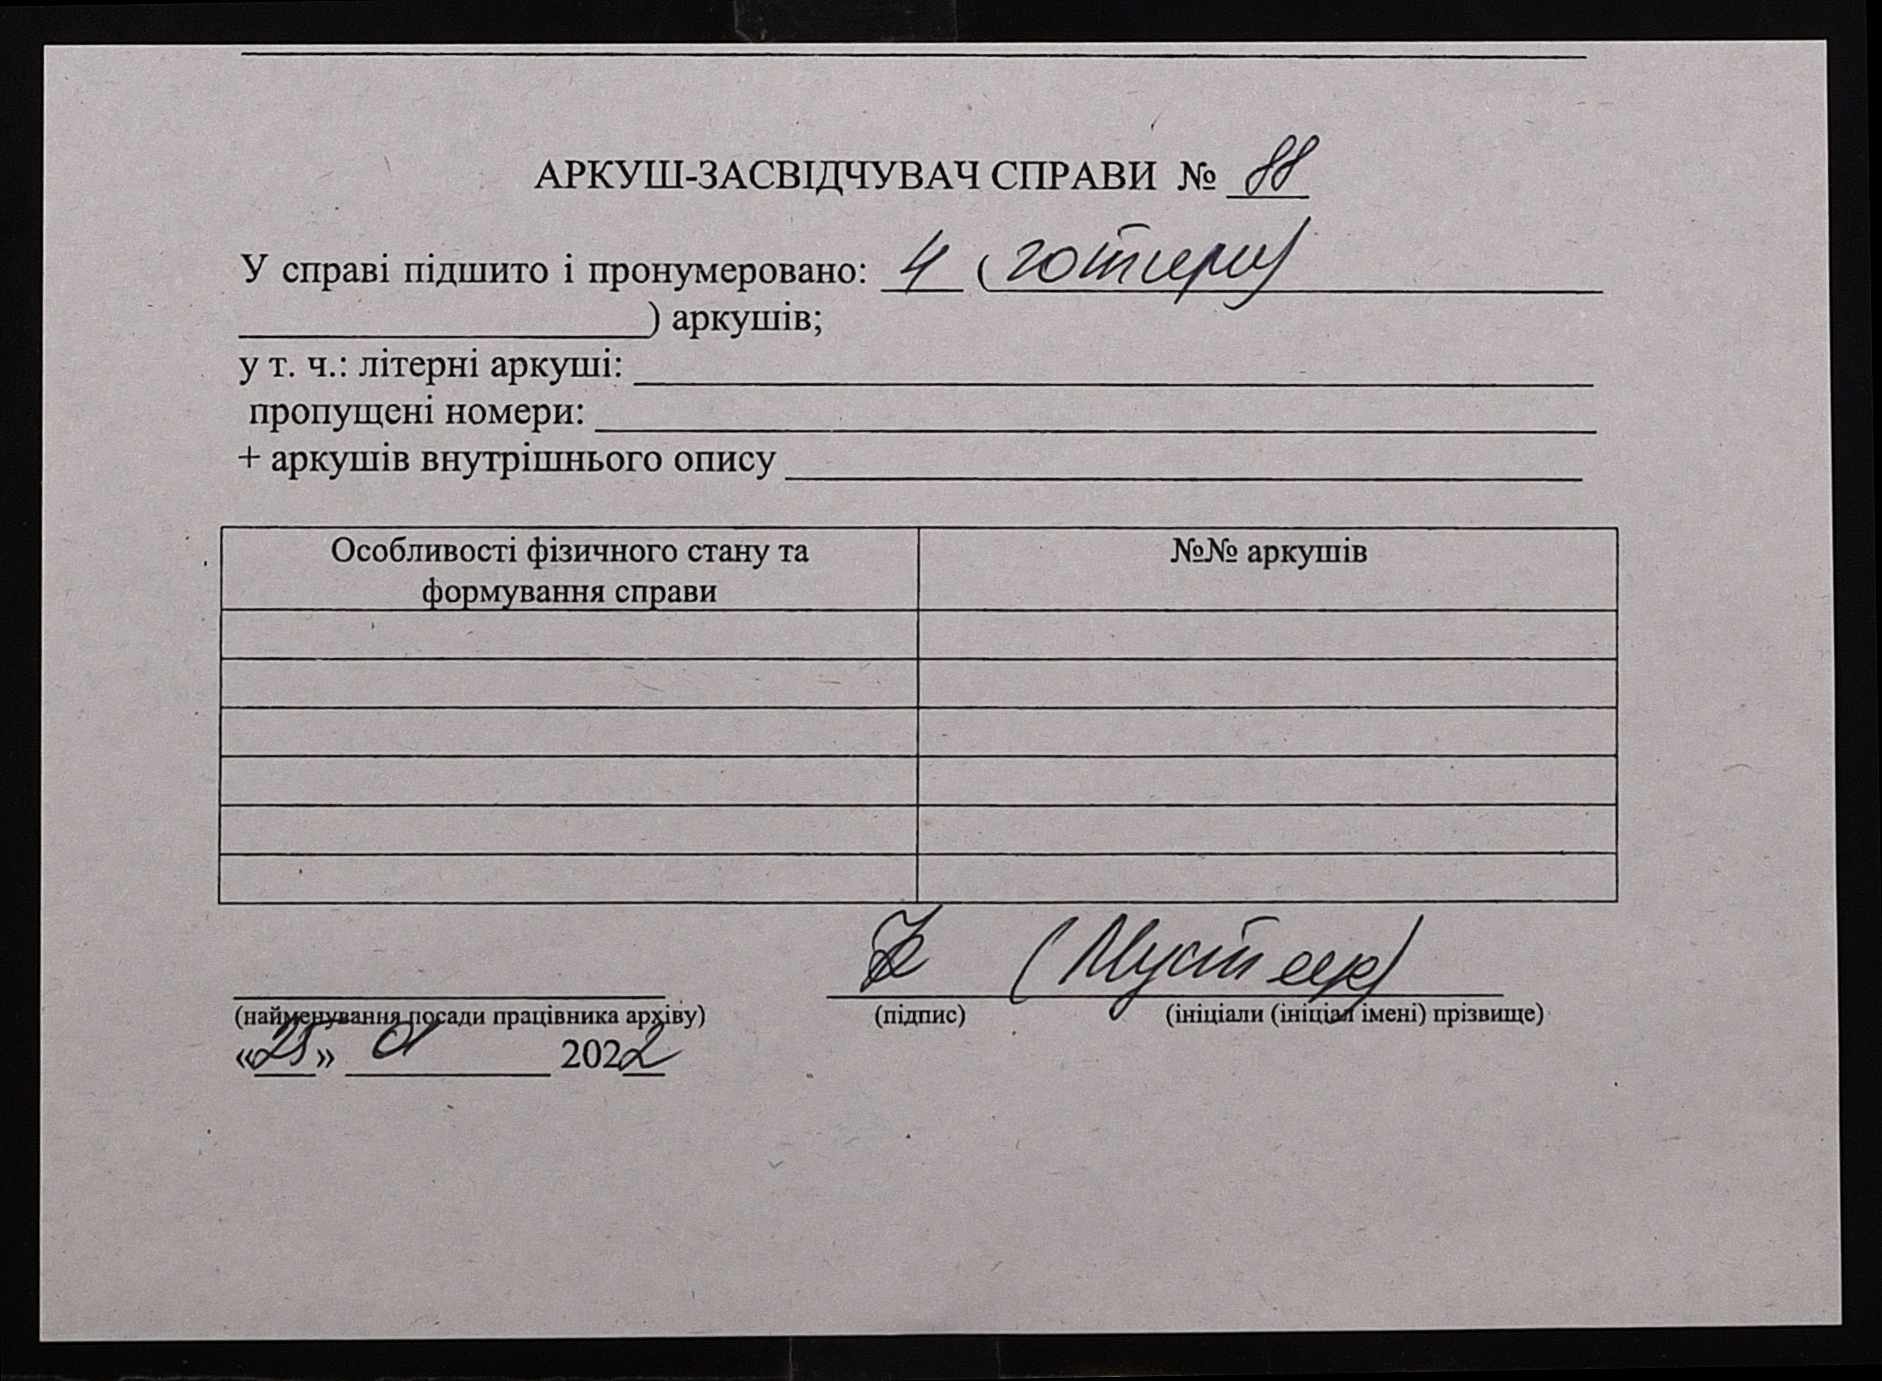 АРКУШ-ЗАСВІДЧУВАЧ СПРАВИ № 88
У справі підшито і пронумеровано: 4 (чотири)
) аркушів;
у т. ч.: літерні аркуші:
пропущені номери:
+ аркушів внутрішнього опису
Особливості фізичного стану та
формування справи
№№ аркушів
(найменування посади працівника архіву) (підпис) (ініціали (ініціал імені) прізвище)
«25» 01 2022